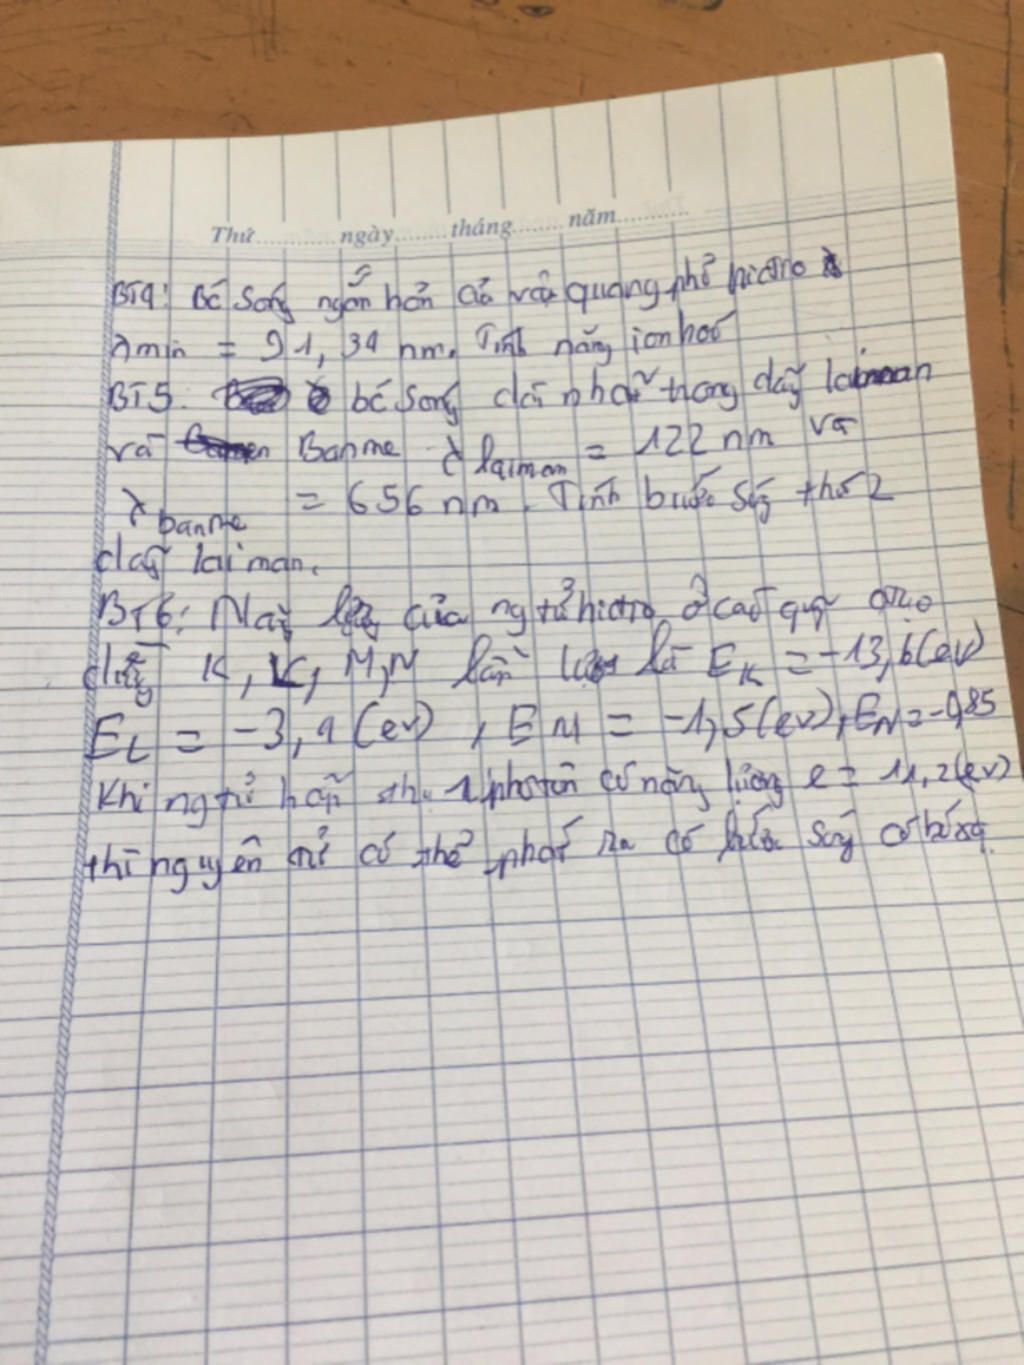 Thứ............ngày.......tháng.......năm..........
BT4: Bć sóng ngắn của quang phổ hidro
λmin = 91,34 nm. Tính năng ion hoá
BT5. bć sóng dài nhất trong dãy laiman
và Banme λ laiman = 122 nm và
λ banme = 656 nm. Tính bước sóng thứ 2
dãy laiman.
BT6: của ng tử hidro ở các quỹ đạo
dừng K, L, M, N lần lượt là EK = -13,6(ev)
EL = -3,4 (ev), EM = -1,5(ev), EN = -0,85
Khi ng tử hấp thụ 1 photon có năng lượng e = 11,2(ev)
thì nguyên tử có thể phát ra có sóng